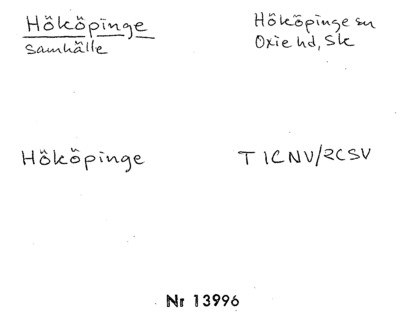 Hököpinge
samhälle
Hököpinge sn
Oxie hd, Sk
Hököpinge
T 1CNV/2CSV
Nr 13996